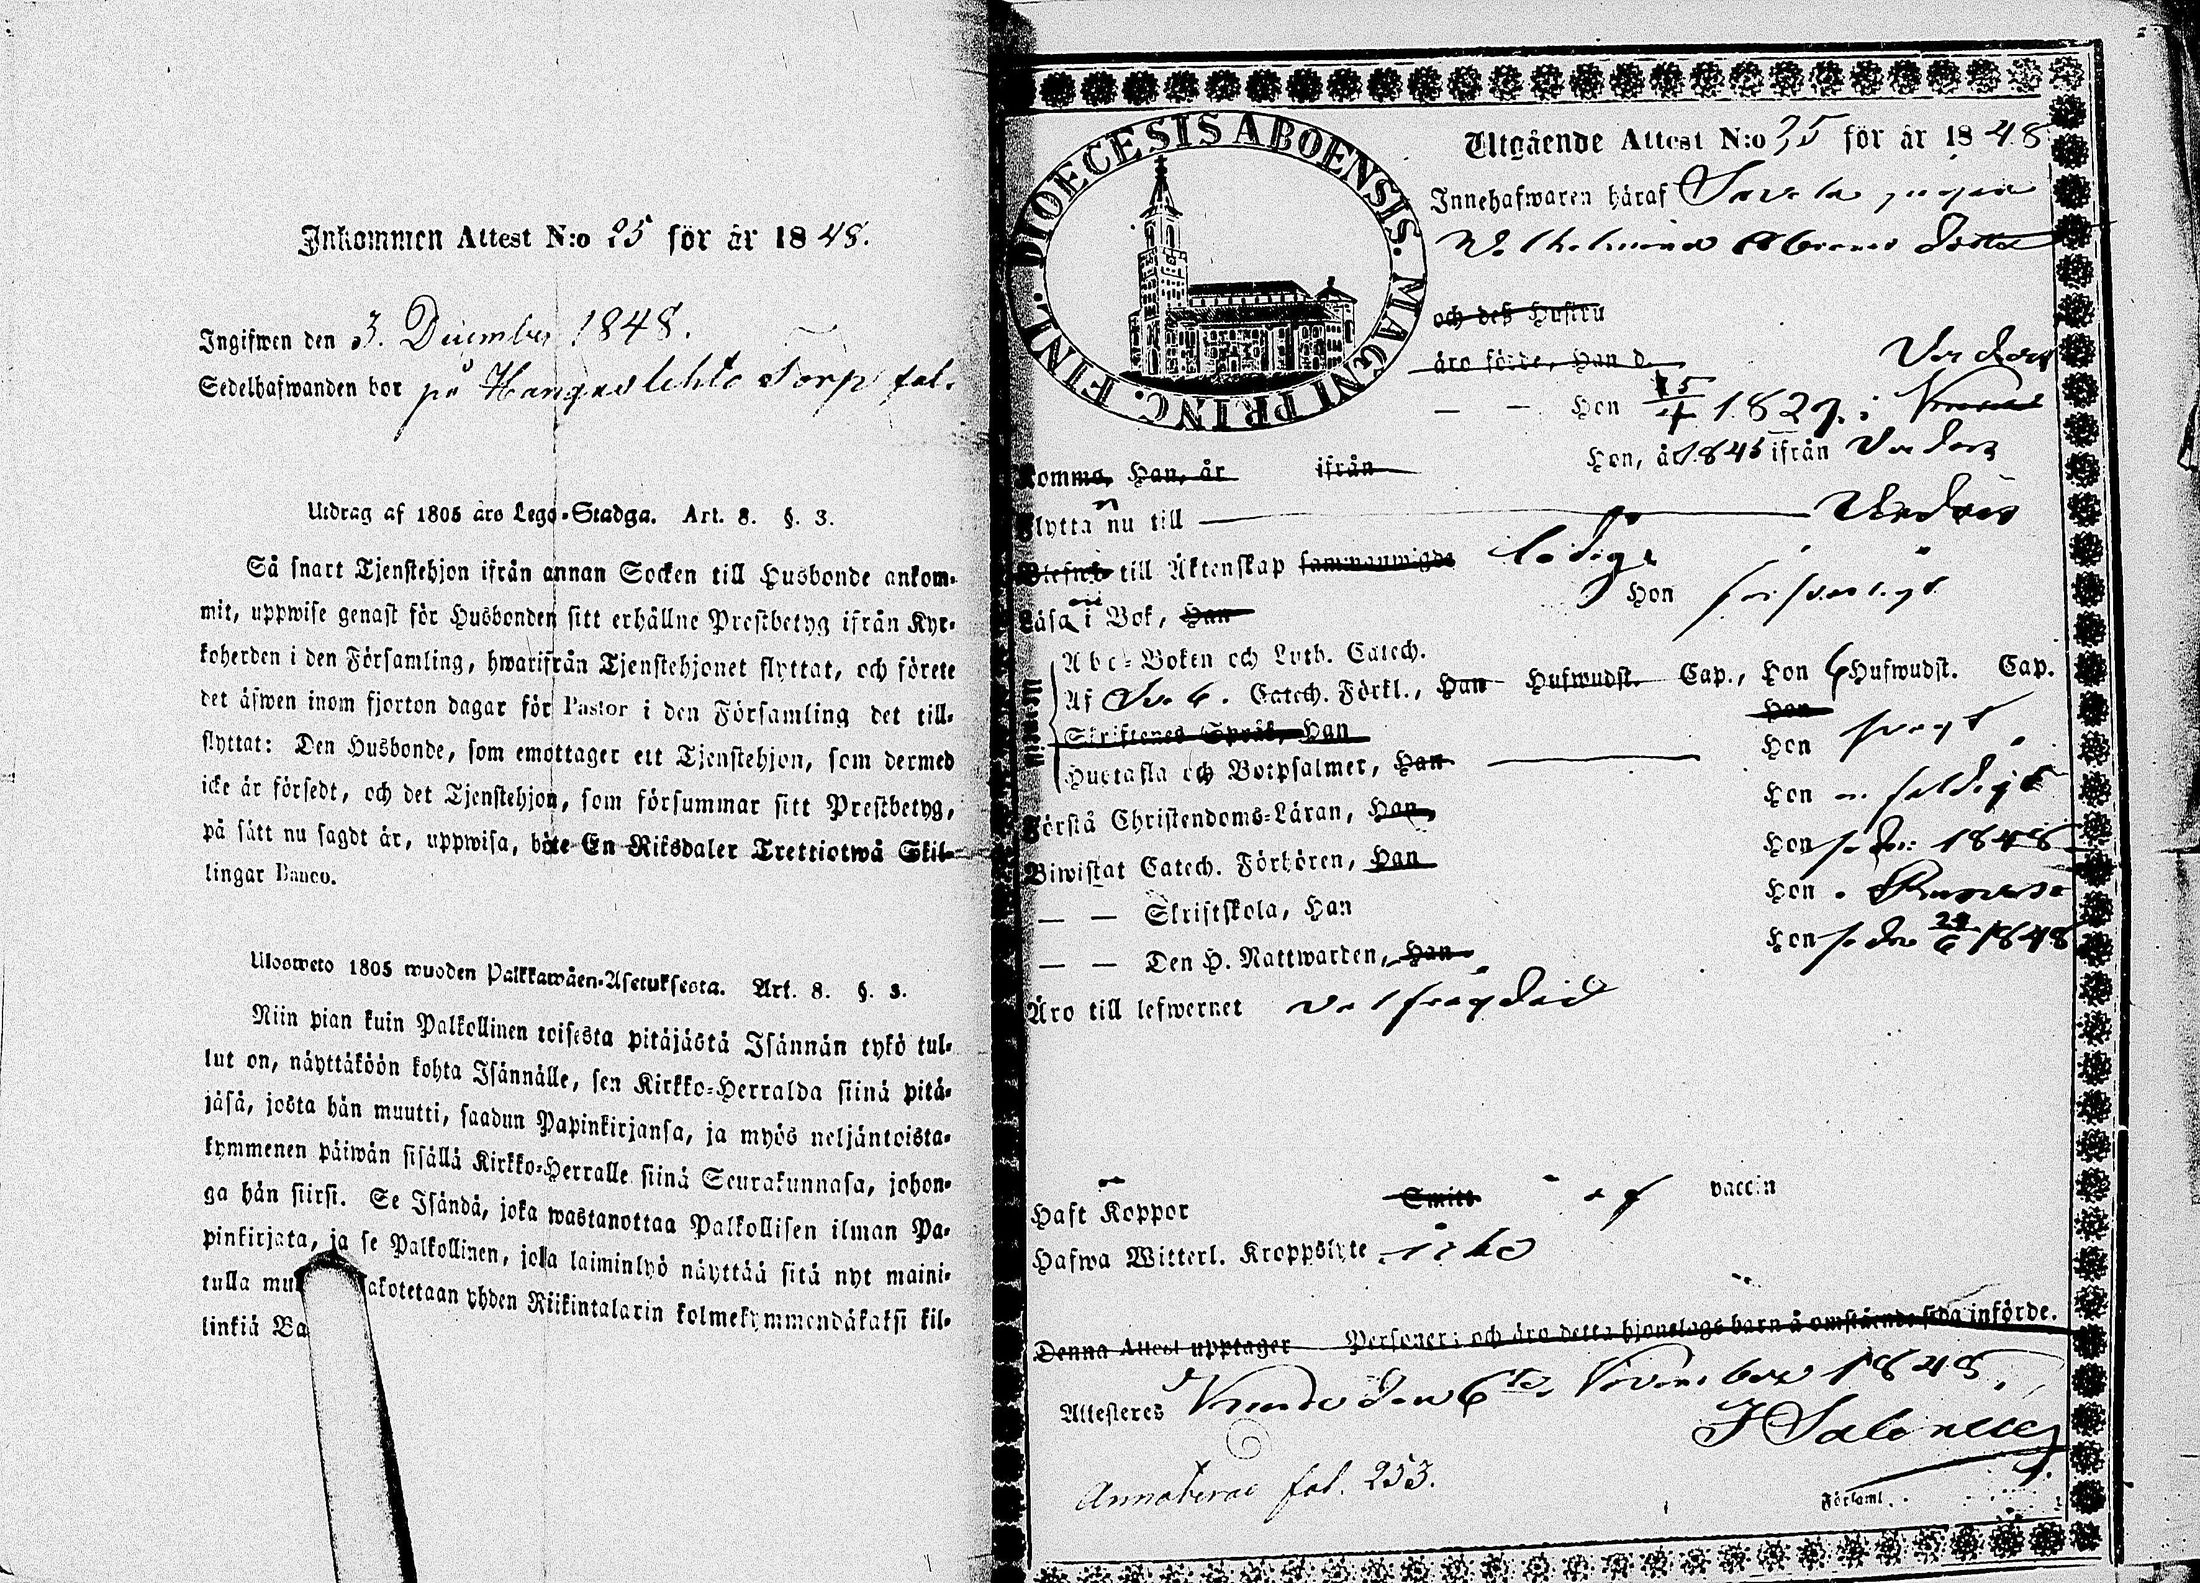 Inkommen Attest N:o 25 för år 1848.
Ingifwen den 3. December 1848.
Sedelhafwanden bor på Torp fol.
Utdrag af 1805 års Lego-Stadga. Art. 8. §. 3.
Så snart Tjenstehjon ifrån annan Socken till Husbonde ankom-
mit, uppwise genast för Husbonden sitt erhållne Prestbetyg ifrån Kyr-
koherden i den Församling, hwarifrån Tjenstehjonet flyttat, och förete
det äfwen inom fjorton dagar för Pastor i den Församling det till-
flyttat: Den Husbonde, som emottager ett Tjenstehjon, som dermed
icke är försedt, och det Tjenstehjon, som försummar sitt Prestbetyg,
på sätt nu sagdt är, uppwisa, böte En Riksdaler Trettiotwå Skil-
lingar Banco.
Ulosweto 1805 wuoden Palkkawäen-Asetuksesta. Art. 8. §. 3.
Niin pian kuin Palkollinen toisesta pitäjästä Isännän tykö tul-
lut on, näyttäköön kohta Isännälle, sen Kirkko-Herralda siinä pitä-
jäsä, josta hän muutti, saadun Papinkirjansa, ja myös neljäntoista-
kymmenen päiwän sisällä Kirkko-Herralle siinä Seurakunnasa, johon-
ga hän siirsi. Se Isändä, joka wastanottaa Palkollisen ilman Pa-
pinkirjata, ja se Palkollinen, joka laiminlyö näyttää sitä nyt maini-
tulla mu akotetaan yhden Riikintalarin kolmekymmendäkaksi kil-
linkiä Ba
DIOECESIS ABOENSIS. MAGNI PRINC. FINL.
Utgående Attest N:o 35 för år 1848
Innehafwaren häraf Savela pigan
Wilhelmina dotter
och deß Hustru
äro födde, Han d.
Hon 15/4 1827. i
Komma, Han, år ifrån Hon, år 1845 ifrån
Flytta nu till
till Äktenskap sammanwigde ledig
Läsa i Bok, Han Hon försvarligt
Abc-Boken och Luth. Catech.
Af Catech. Förkl., Han Hufwudst. Cap., Hon 6 Hufwudst. Cap.
Skriftenes Språk, Han Hon
Hustafla och Botpsalmer, Han Hon svagt
Förstå Christendoms-Läran, Han, Hon
Biwistat Catech. Förhören, Han Hon 1848
— — Skriftskola, Han Hon
— — Den H. Nattwarden, Han Hon 1848
Äro till lefwernet välfrägdad
Haft Koppor Smitt af vaccin
Hafwa Witterl. Kroppslyte icke
Denna Attest upptager Personer; och äro detta hjonelags barn å omstående sida införde.
Attesteras den 6te November 1848.
Annoterad fol. 253.
Församl.